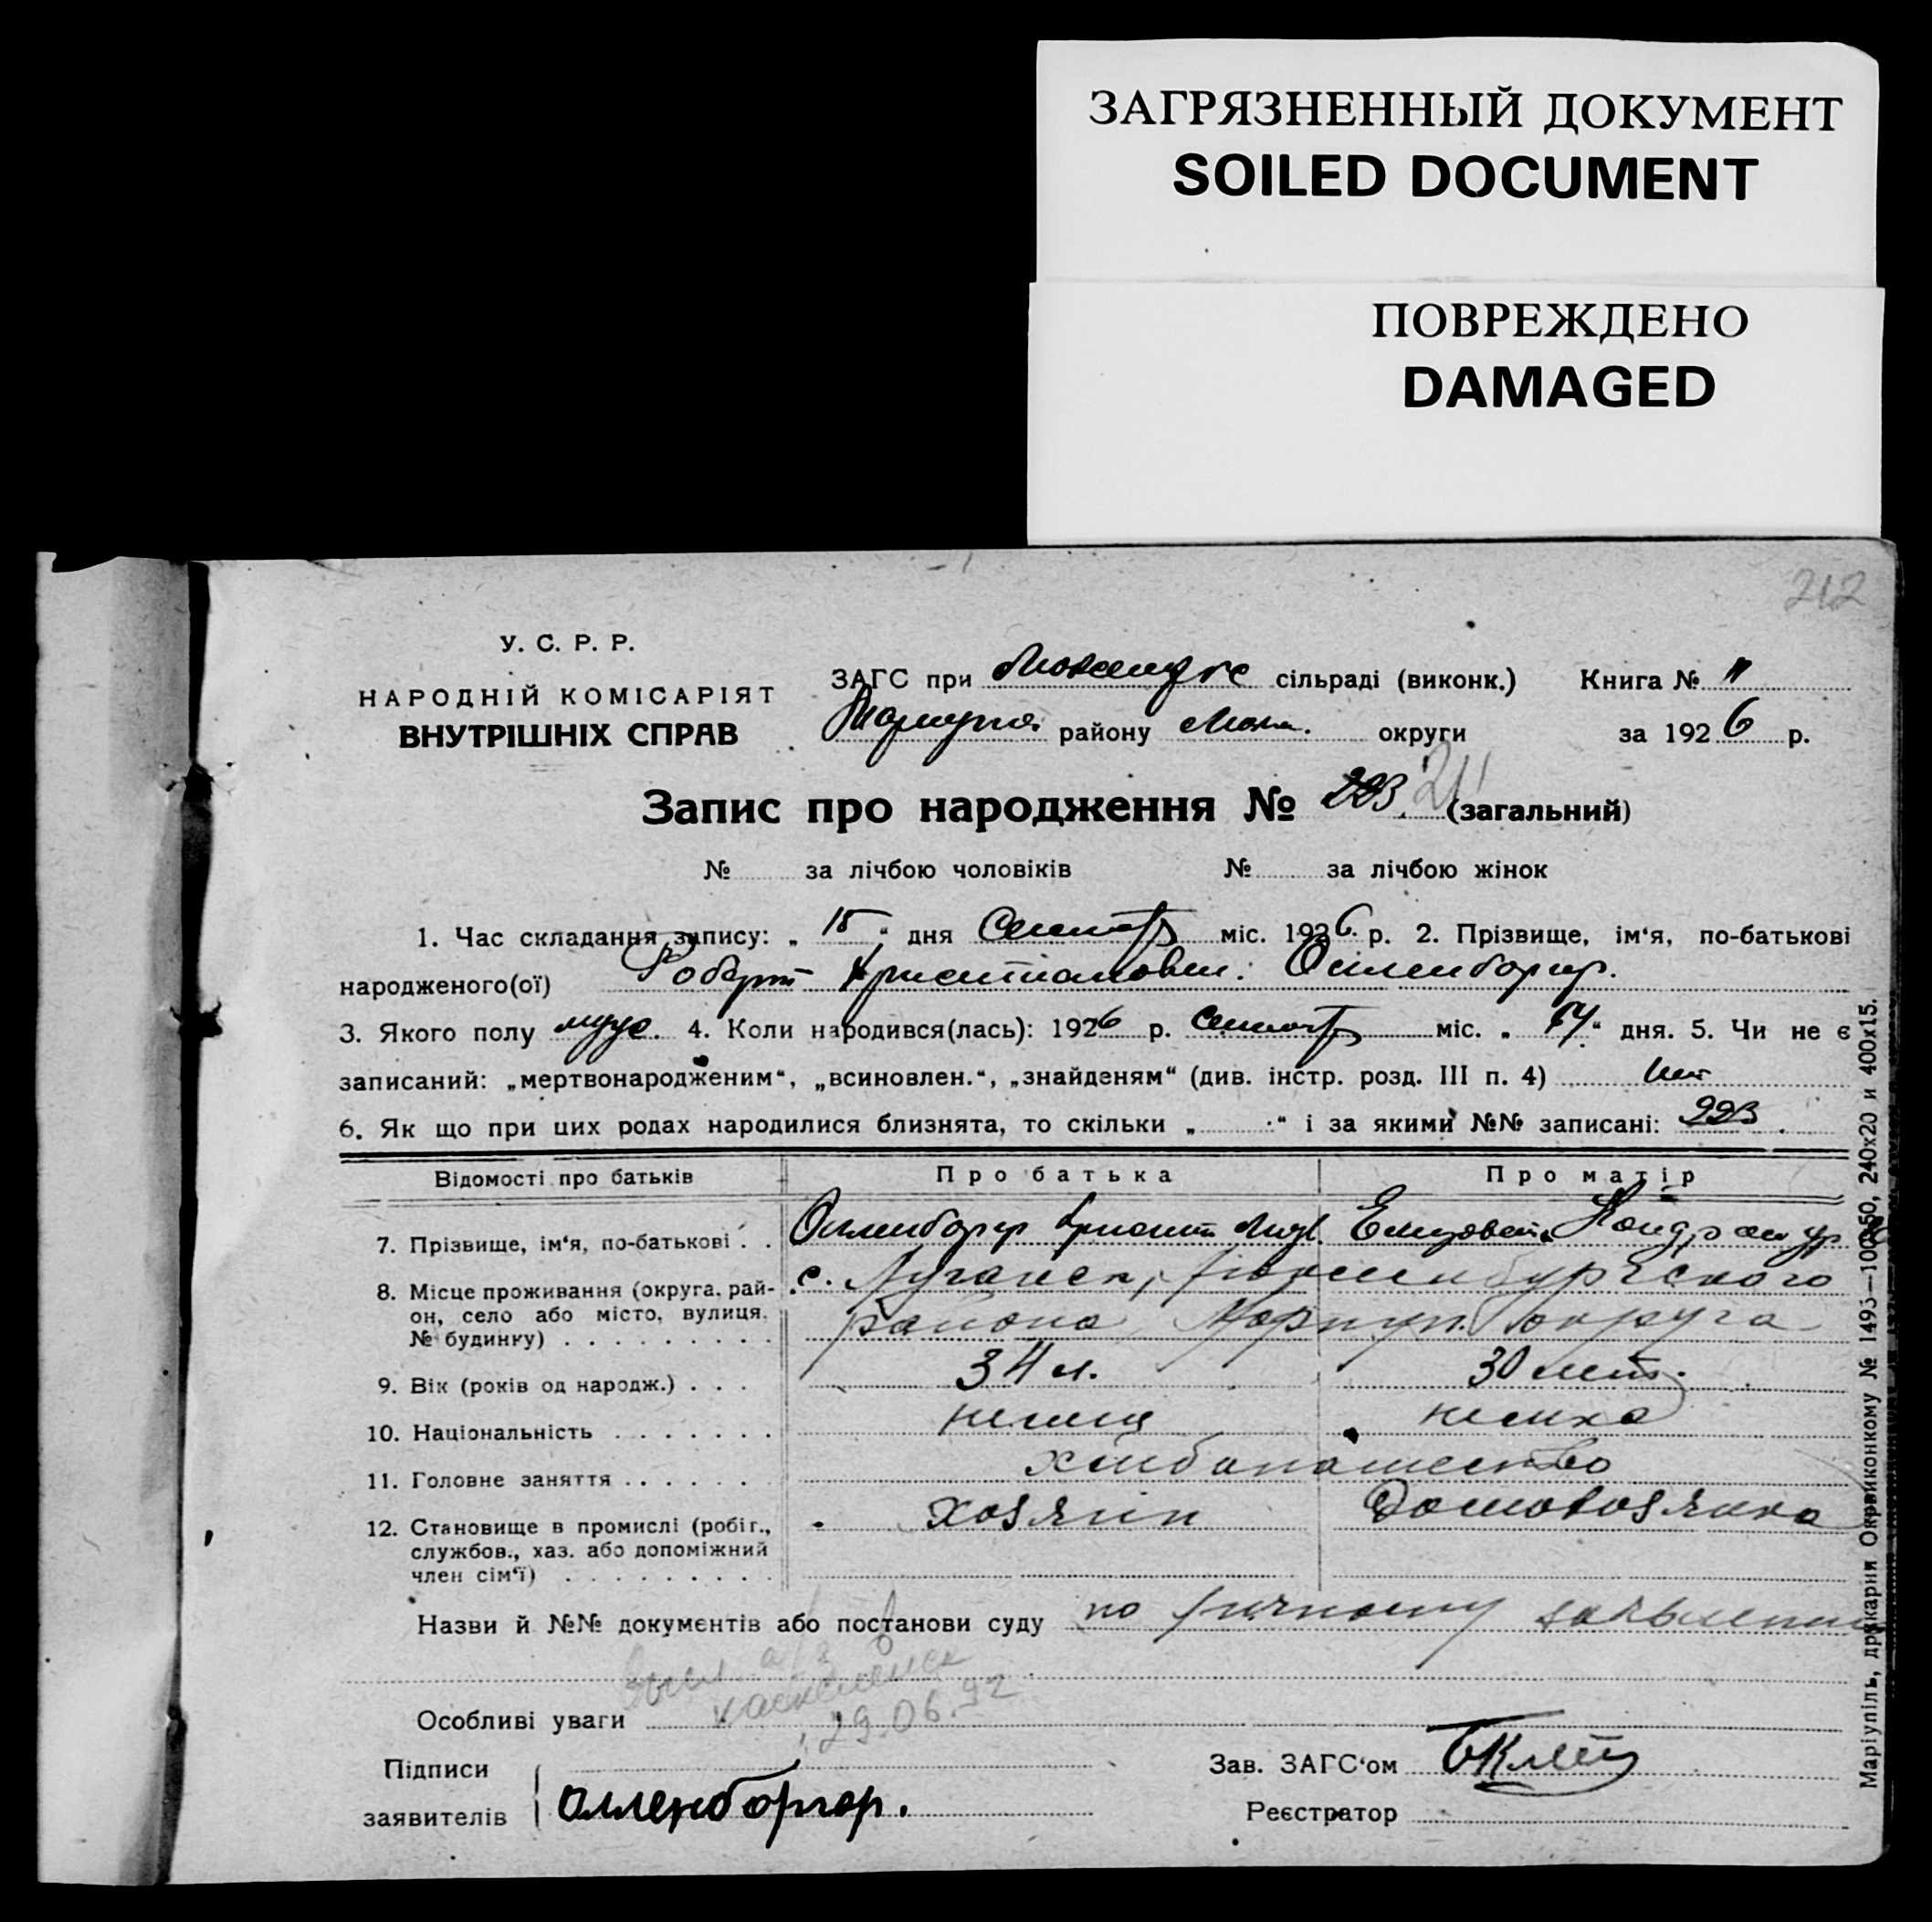 ЗАГРЯЗНЕННЫЙ ДОКУМЕНТ
SOILED DOCUMENT
ПОВРЕЖДЕНО
DAMAGED
212
У. С. Р. Р.
НАРОДНІЙ КОМІСАРІЯТ
ВНУТРІШНІХ СПРАВ
ЗАГС при сільраді (виконк.) Книга № "
району округи за 1926 р.
Запис про народження № 223. 211 (загальний)
№ за лічбою чоловіків № за лічбою жінок
1. Час складання запису: „ 15 " дня Сентябр міс. 1926 р. 2. Прізвище, ім'я, по-батькові
народженого(ої) Роберт Християнович Оленборгер.
3. Якого полу муж. 4. Коли народився(лась): 1926 р. Сентябр міс. „ 14 " дня. 5. Чи не є
записаний: „мертвонародженим", „всиновлен.", „знайденям" (див. інстр. розд. III п. 4) Нет
6. Як що при цих родах народилися близнята, то скільки „ " і за якими №№ записані: 223.
Відомості про батьків Про батька Про матір
7. Прізвище, ім'я, по-батькові . . Оленборгер Христ. Елизовет.
8. Місце проживання (округа, рай-он, село або місто, вулиця, № будинку) . . . . . . . . . с. Луганск, Люксембургского
района Мариуп. округа
9. Вік (років од народж.) . . . 34 л. 30 лет.
10. Національність . . . . . . . немец немка
11. Головне заняття . . . . . . хлибопашество
12. Становище в промислі (робіг., службов., хаз. або допоміжний член сім'ї) . . . . . . . . . хозяин Домохозяика
Назви й №№ документів або постанови суду по личному заявлению
29.06.92
Особливі уваги
Підписи
заявителів Олленборгер.
Зав. ЗАГС'ом
Реєстратор
Маріупіль, друкарня Окрвиконкому № 1493—100×50, 240х20 и 400х15.